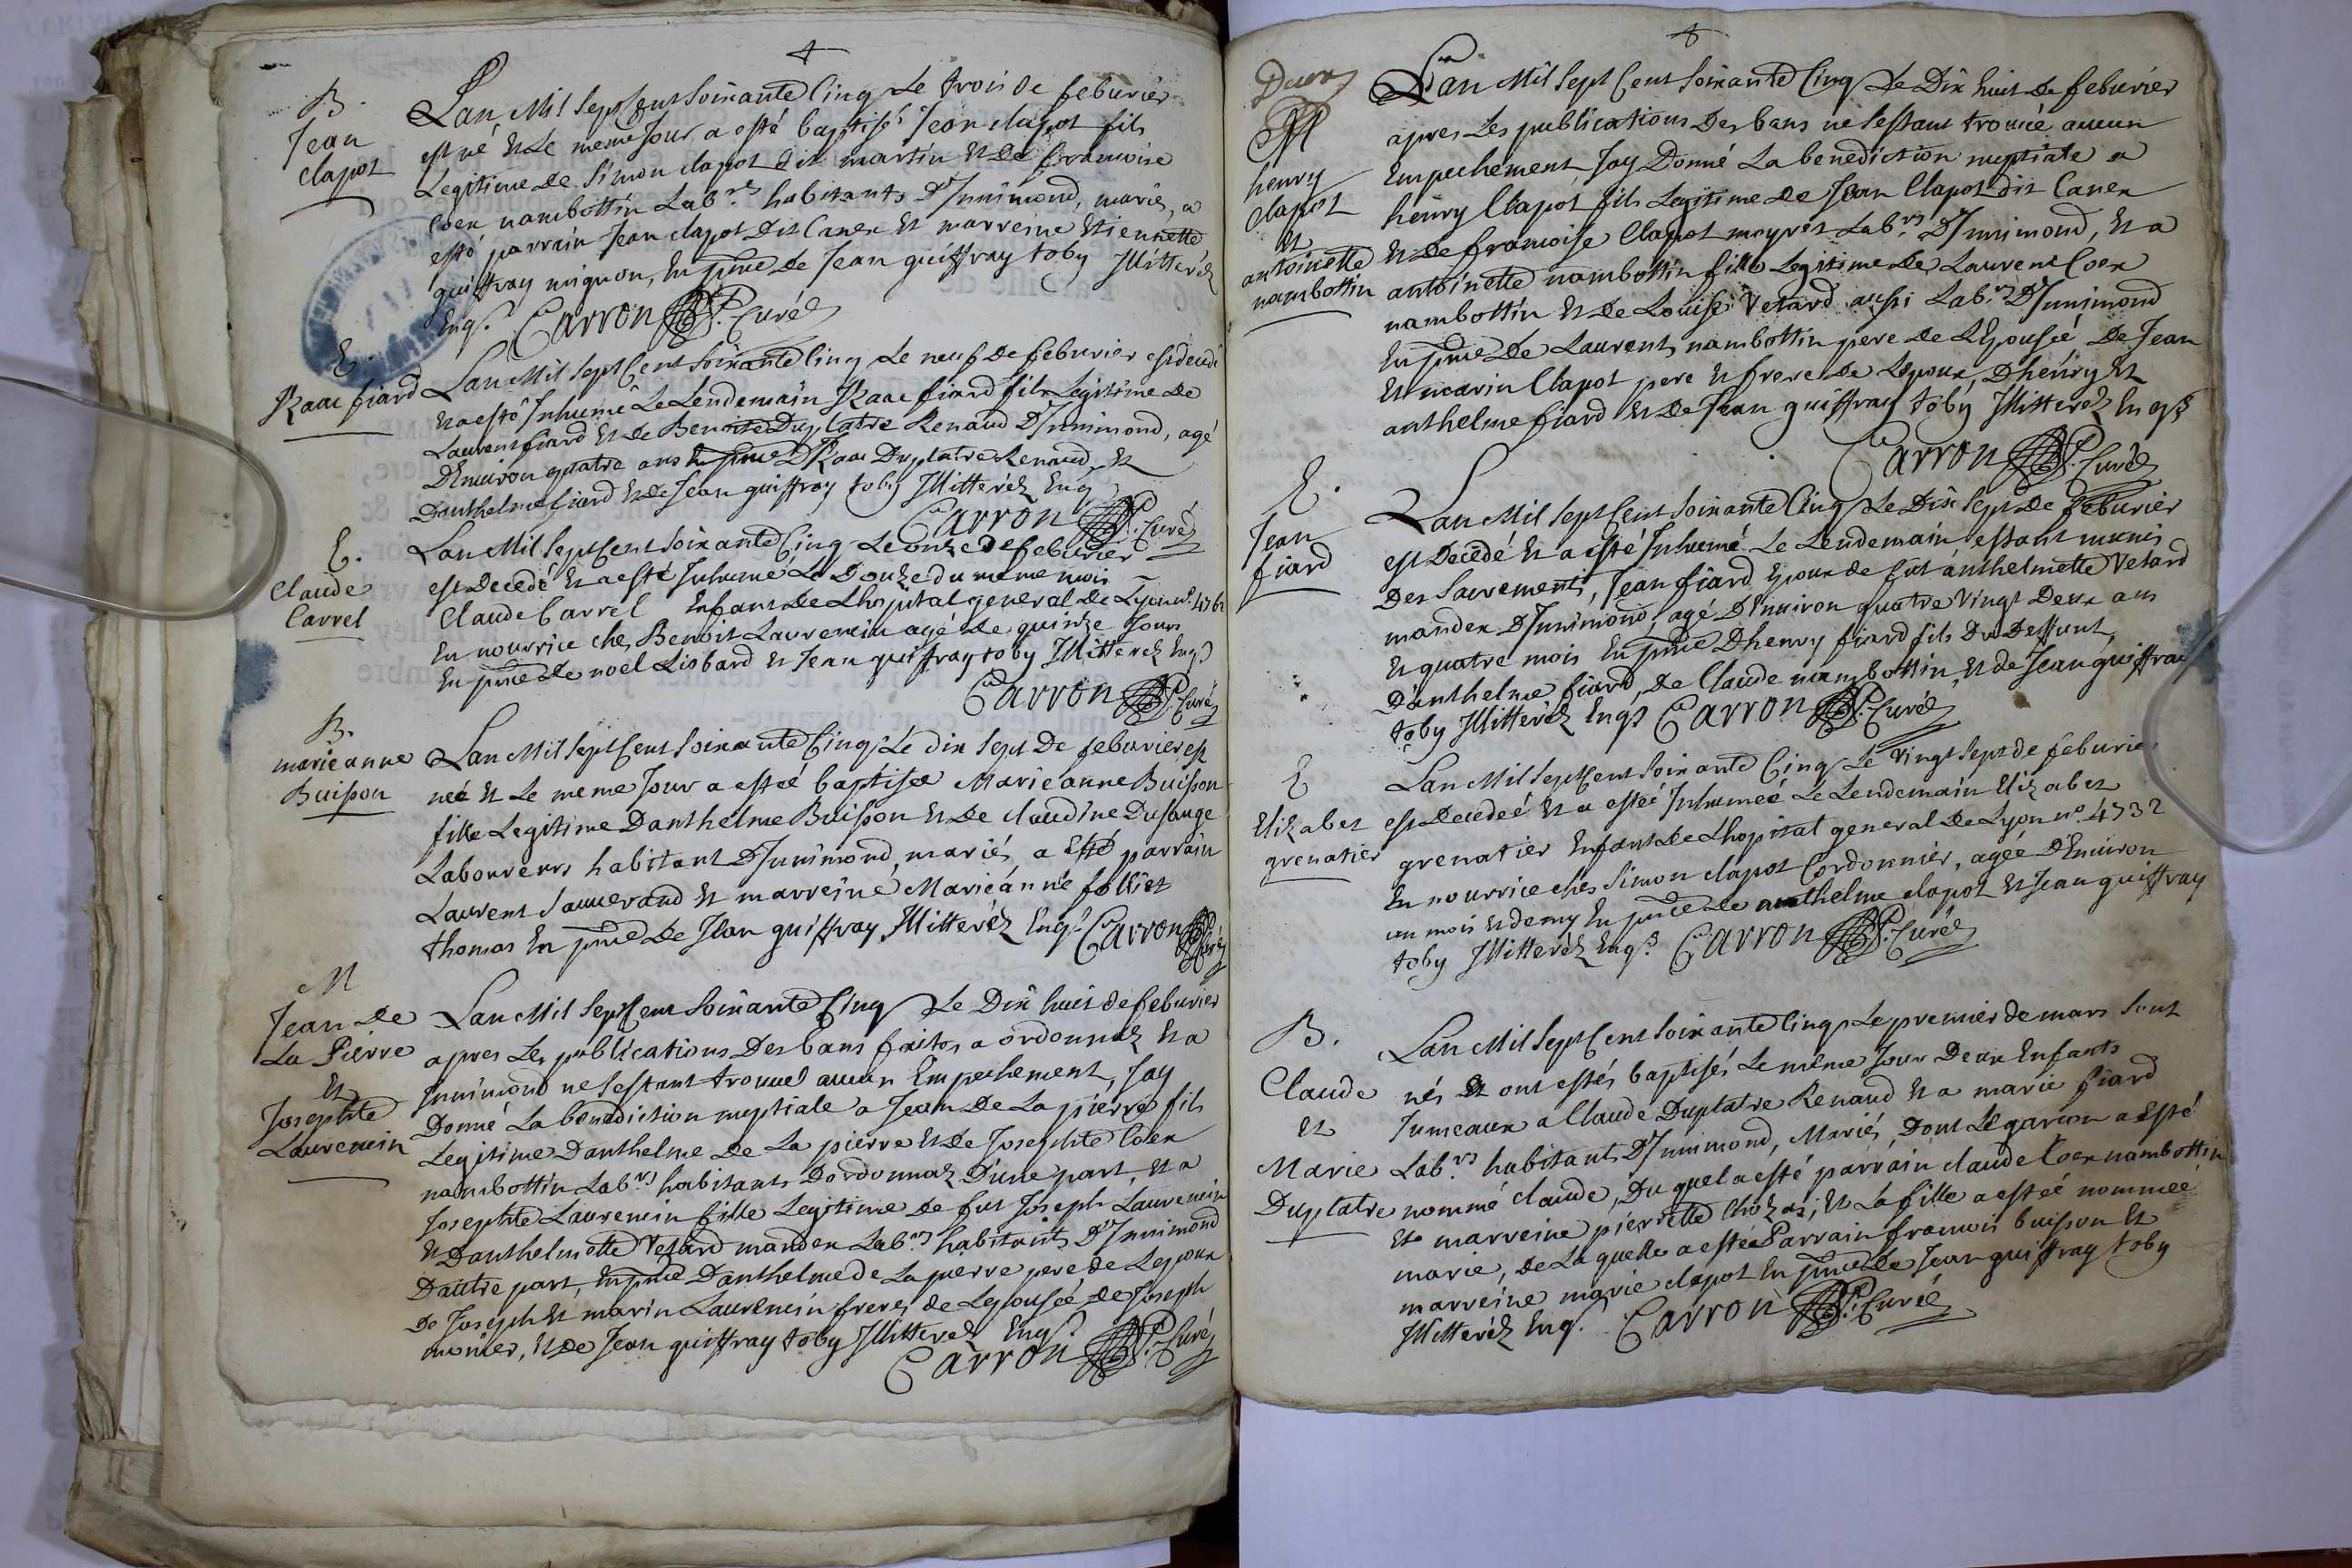 B.
Jean
clapot
Lan Mil Sept Cent Soixante Cinq Le trois de feburier
est né Et Le meme Jour a esté baptisé Jean clapot fils
Legitime de Simon clapot dit martin Et de francoise
Coex nambottin Lab.rs habitants D'Innimond, mariés, a
esté parrain Jean clapot Dit Canex Et marreine Etiennette
guiffray mignon, En pnce de Jean guiffray toby Illitteréz
Enq.s Carron P: Curé
E.
Isaac fiard
Lan Mil Sept Cent Soixante Cinq Le neuf De feburier est decedé
Et a esté Inhumé Le Lendemain Isaac fiard fils Legitime de
Laurent fiard Et de Benoite Duplatre Renaud D'Innimond, agé
D'Environ quatre ans En pnce D'Isaac Duplatre Renaud, Et
D'anthelme fiard Et de Jean guiffray toby Illitteréz Enq
Carron P: Curé
E.
Claude
Carrel
Lan Mil Sept Cent Soixante Cinq Le onze De feburier
est Decedé Et a esté Inhumé Le Douze du meme mois
Claude Carrel Enfant de Lhopital general de Lyon n.o
En nourrice ches Benoit Laurencin agé de quinze Jours
En pnce de noel Liobard Et Jean guiffray toby Illitteréz Enqs
Carron P: Curé
B.
marieanne
Buisson
Lan Mil Sept Cent Soixante Cinq Le dix Sept De feburier, est
neé Et Le meme Jour a estéé baptisée Marieanne Buisson
fille Legitime Danthelme Buisson Et De claudine Dusauge
Laboureurs habitant D'Innimond, mariés, a Esté parrain
Laurent Sauverand Et marreine Marieanne folliet
thomas En pnce de Jean guiffray, Illitteréz Enq.s Carron P: Curé
M
Jean De
La Pierre
Et
Josephte
Laurencin
Lan Mil Sept Cent Soixante Cinq Le Dix huit de feburier
apres Les publications Des bans faites a ordonnaz Et a
Innimond ne Sestant trouué aucun Empechement, Jay
Donné La benediction nuptiale a Jean De La pierre fils
Legitime Danthelme De La pierre Et de Josephte Coex
nambottin Lab.rs habitants Dordonnaz D'une part, Et a
Josephte Laurencin fille Legitime De fut Joseph Laurencin
Et Danthelmette Vetard mandex Lab.rs habitants D'Innimond
Dautre part, En pnce Danthelme de La pierre pere de Lepoux
De Joseph Et marin Laurencin freres de Lepouséé de Joseph
monier, Et De Jean guiffray toby Illitteréz Enq.s
Carron P: Curé
M
henry
clapot
Et
antoinette
nambottin
Lan Mil Sept Cent Soixante Cinq Le Dix huit De feburier
apres Les publications Des bans ne Sestant trouué aucun
Empechement Jay Donné La benediction nuptiale a
henry Clapot fils Legitime de Jean Clapot dit Canex
Et De francoise Clapot mayret Lab.rs D'Innimond, Et a
antoinette nambottin fille Legitime de Laurent Coex
nambottin Et De Louise Vetard aussi Lab.rs D'Innimond
En pnce De Laurent nambottin pere de LEpouséé De Jean
Et marin Clapot pere Et frere De Lepoux, Dhenry Et
anthelme fiard Et De Jean guiffray toby Illitteréz Enqs
Carron P: Curé
E.
Jean
fiard
Lan Mil Sept Cent Soixante Cinq Le Dix Sept De feburier
est Decedé Et a esté Inhumé Le Lendemain estant munis
Des Sacrements, Jean fiard Epoux de fut anthelmette Vetard
mandex D'Innimond, agé D'Environ quatre Vingt Deux ans
Et quatre mois En pnce Dhenry fiard fils Du Deffunt,
Danthelme fiard, De Claude nambottin, Et de Jean guiffray
toby Illitteréz Enqs Carron P: Curé
E
Elizabet
grenatier
Lan Mil Sept Cent Soixante Cinq Le Vingt Sept de feburier
est Decedeé Et a estéé Inhumeé Le Lendemain Elizabet
grenatier Enfant de Lhopital general de Lyon n.o 4732
En nourrice ches Simon clapot Cordonnier, agéé D'Environ
un mois Et demy En pnce de anthelme clapot Et Jean guiffray
toby Illitteréz Enq.s Carron P: Curé
B.
Claude
Et
Marie
Duplatre
Lan Mil Sept Cent Soixante Cinq Le premier de mars Sont
nés Et ont estés baptisés Le même Jour Deux Enfants
Jumeaux a Claude Duplatre Renaud Et a marie fiard
Lab.rs habitants D'Innimond, Mariés, Dont Le garcon a Esté
nommé claude, Du quel a esté parrain claude Coex nambottin
Et marreine pierrette ; Et La fille a estéé nommeé
marie, de Laquelle a estéé Parrain francois buisson Et
marreine marie clapot En pnce De Jean guiffray toby
Illitteréz Enq. Carron P: Curé